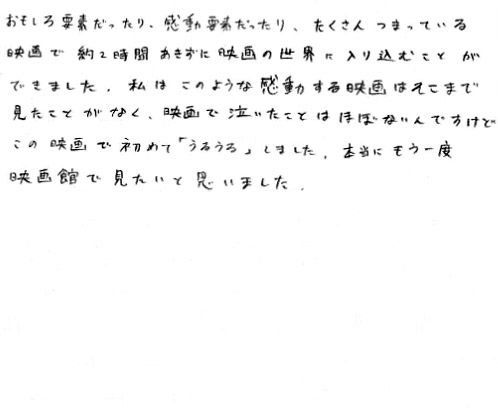 おもしろ要素だったり、感動要素だったり、たくさんつまっている
映画で約2時間あきずに映画の世界に入り込むことが
できました。私はこのような感動する映画はそこまで
見たことがなく、映画で泣いたことはほぼないんですけど
この映画で初めて「うるうる」しました。本当にもう一度
映画館で見たいと思いました。